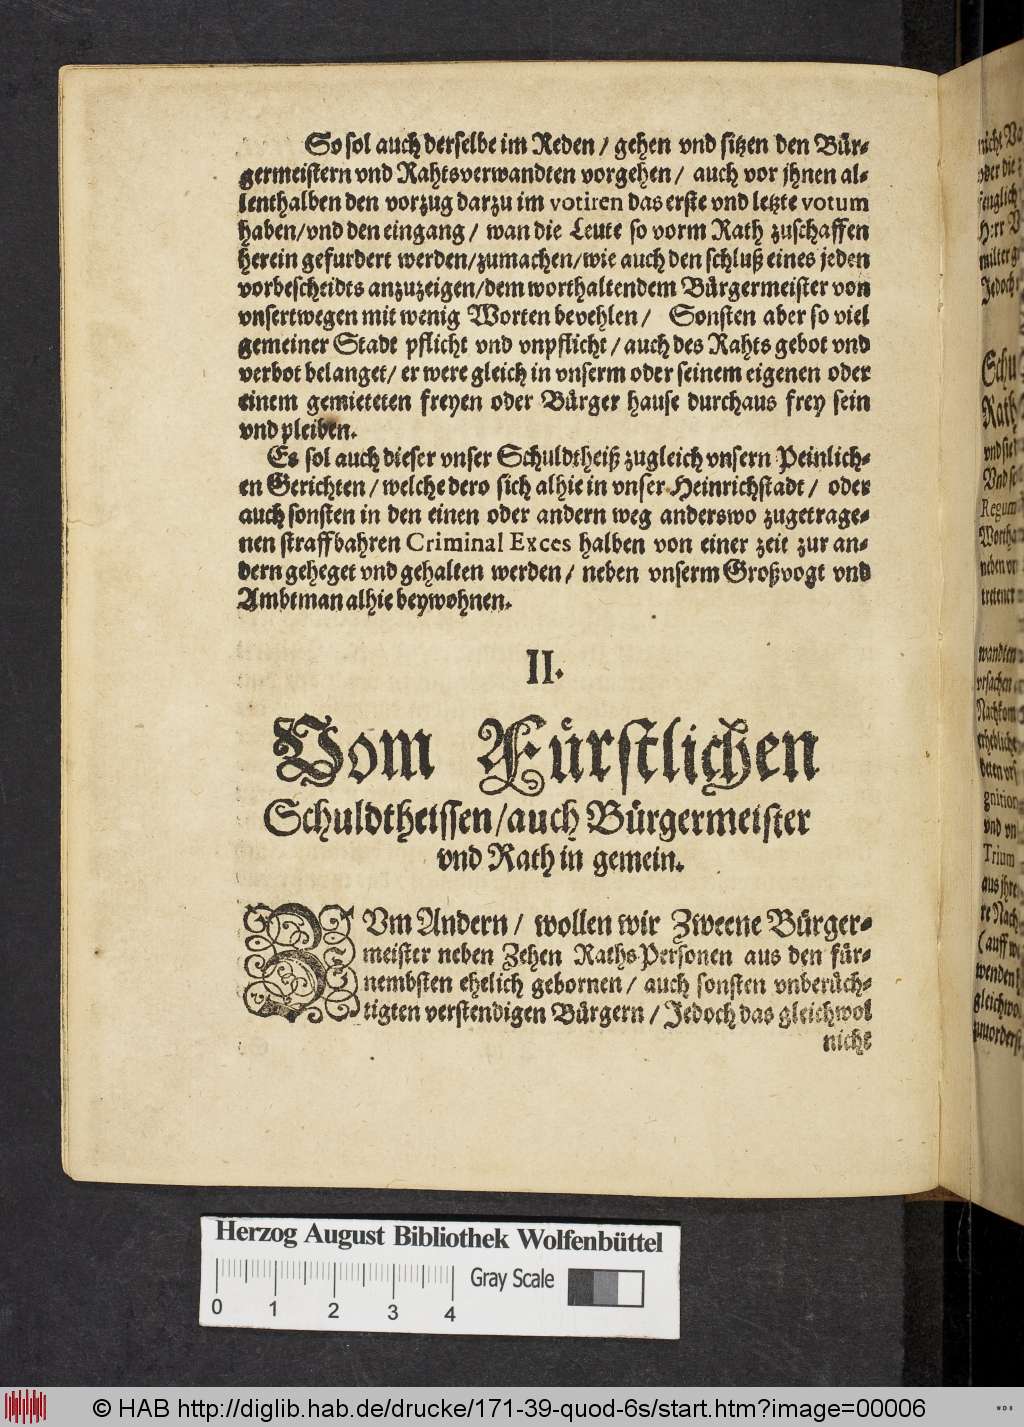 So sol auch derselbe im Reden / gehen vnd sitzen den Bür-
germeistern vnd Rahtsverwandten vorgehen / auch vor jhnen al-
lenthalben den vorzug darzu im votiren das erste vnd letzte votum
haben/vnd den eingang / wan die Leute so vorm Rath zuschaffen
herein gefurdert werden/zumachen/wie auch den schluß eines jeden
vorbescheidts anzuzeigen/dem worthaltendem Bürgermeister von
vnsertwegen mit wenig Worten bevehlen / Sonsten aber so viel
gemeiner Stadt pflicht vnd vnpflicht / auch des Rahts gebot vnd
verbot belanget/ er were gleich in vnserm oder seinem eigenen oder
einem gemieteten freyen oder Bürger hause durchaus frey sein
vnd pleiben.
Es sol auch dieser vnser Schuldtheiß zugleich vnsern Peinlich-
en Gerichten / welche dero sich alhie in vnser Heinrichstadt / oder
auch sonsten in den einen oder andern weg anderswo zugetrage-
nen straffbahren Criminal Exces halben von einer zeit zur an-
dern geheget vnd gehalten werden / neben vnserm Großvogt vnd
Ambtman alhie beywohnen.
II.
Vom Fürstlichen
Schuldtheissen/auch Bürgermeister
vnd Rath in gemein.
ZVm Andern / wollen wir Zweene Bürger-
meister neben Zehen Raths Personen aus den für-
nembsten ehelich gebornen / auch sonsten vnberüch-
tigten verstendigen Bürgern / Jedoch das gleichwol
nicht
Schu
Rath
Regum
Trium
Herzog August Bibliothek Wolfenbüttel
Gray Scale
0 1 2 3 4
© HAB http://diglib.hab.de/drucke/171-39-quod-6s/start.htm?image=00006